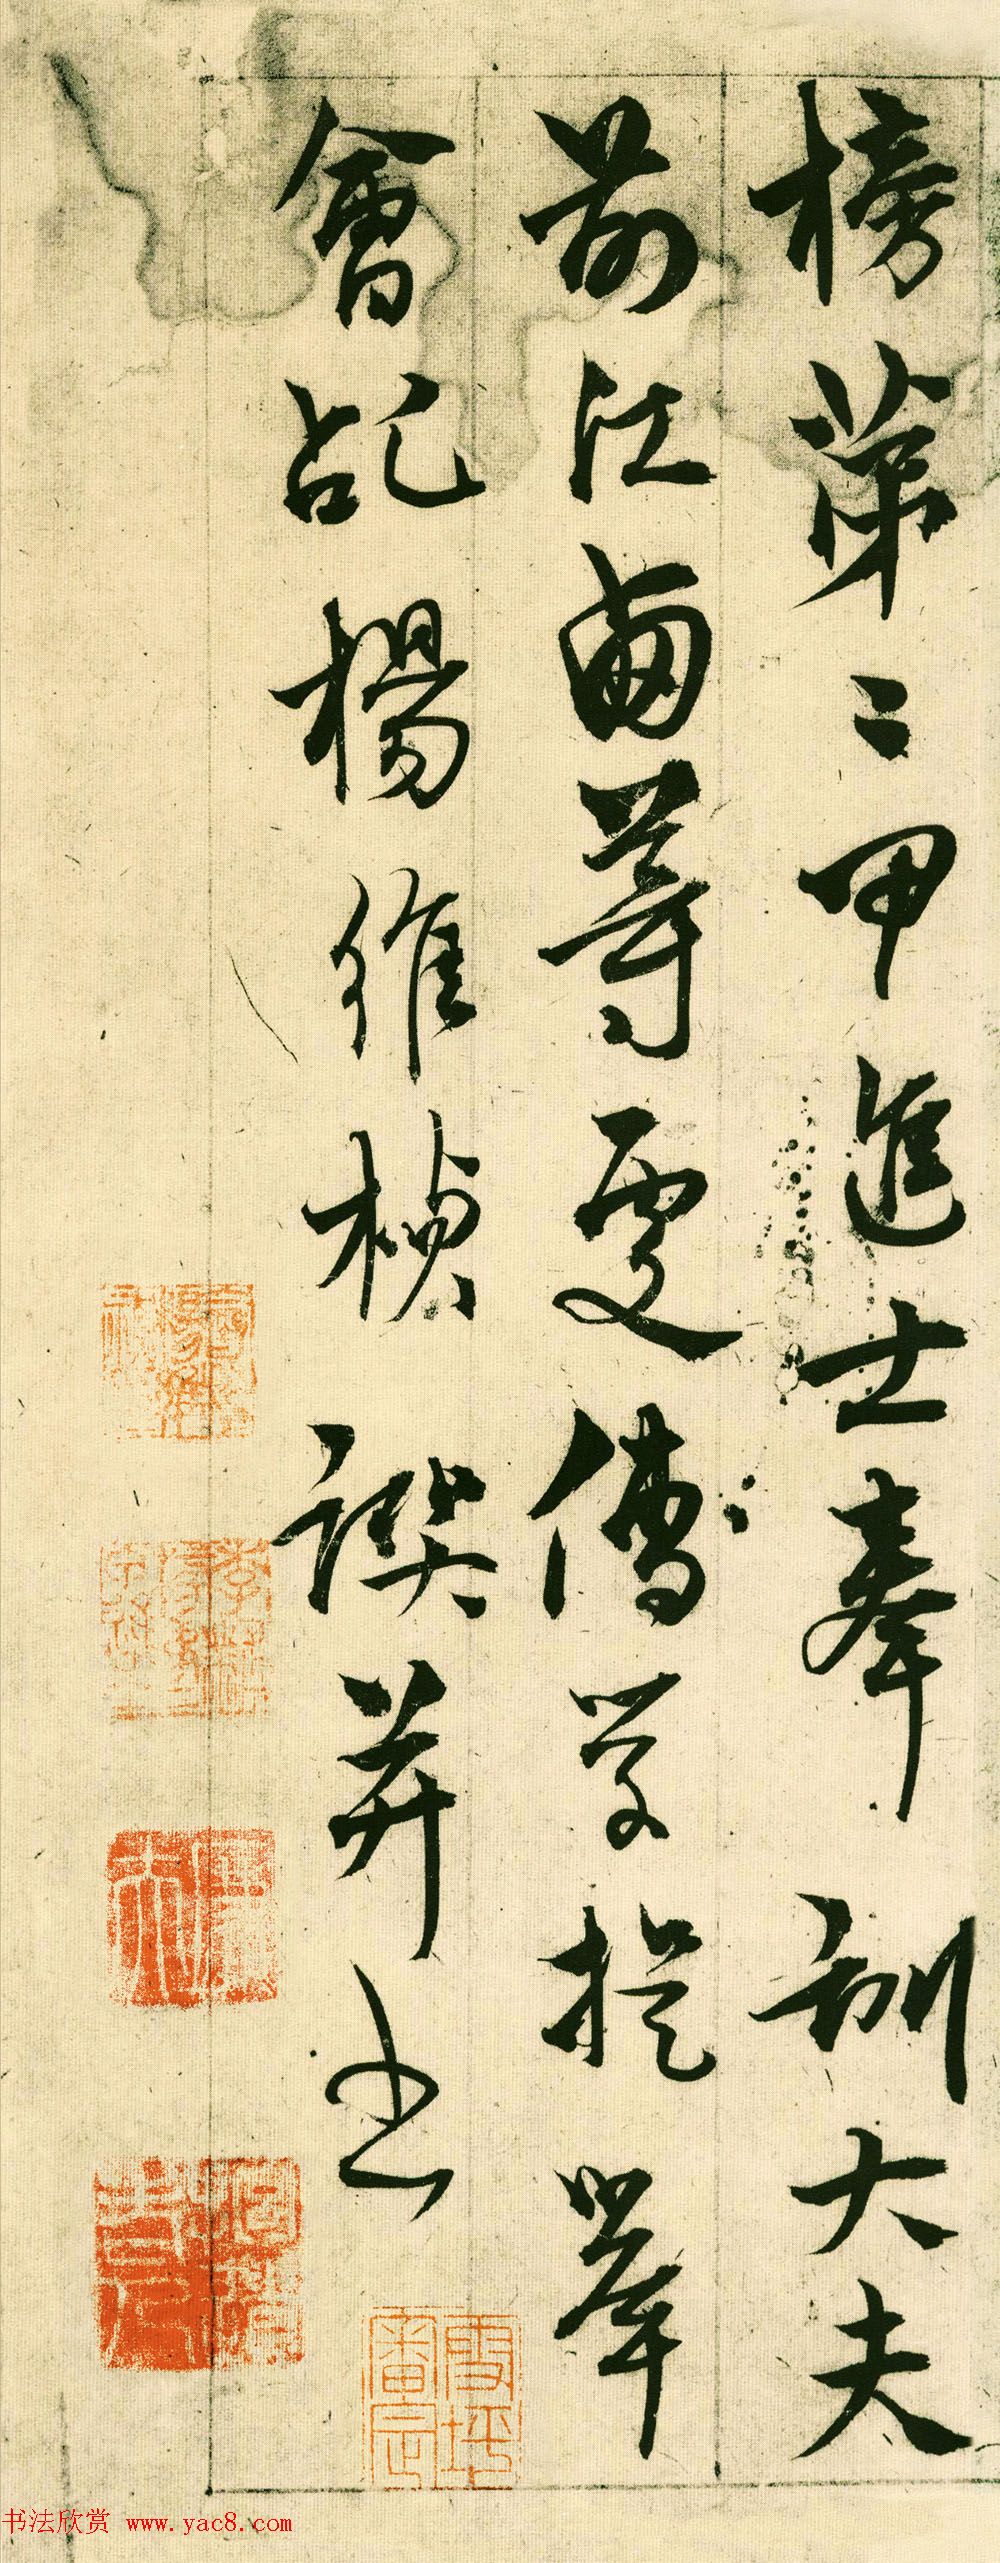 榜第二甲進士奉訓大夫
前江西等處儒學提舉
會稽楊維楨譔并書
雪坪審定
书法欣赏 www.yac8.com